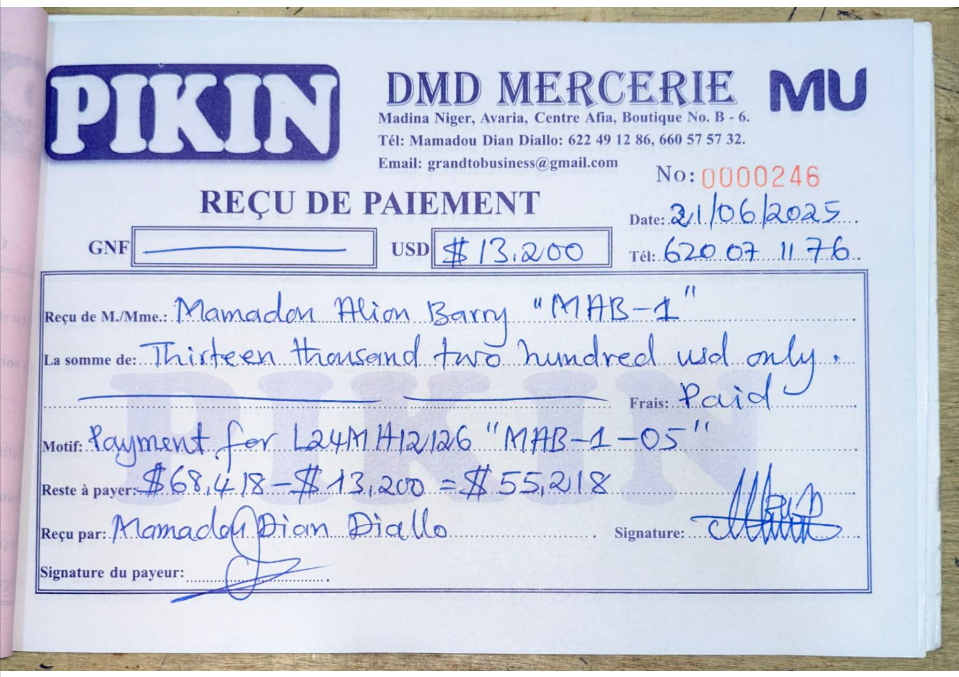 PIKIN
DMD MERCERIE
MU
Madina Niger, Avaria, Centre Afia, Boutique No. B - 6.
Tél: Mamadou Dian Diallo: 622 49 12 86, 660 57 57 32.
Email: grandtobusiness@gmail.com
No: 0000246
REÇU DE PAIEMENT
Date: 21/06/2025
GNF USD $ 13,200 Tél: 620 07 11 76
Reçu de M./Mme.: Mamadou Aliou Barry "MAB-1"
La somme de: Thirteen thousand two hundred usd only.
Frais: Paid
Motif: Payment for L24MH12126 "MAB-1-05"
Reste à payer: $68,418 - $13,200 = $55,218
Reçu par: Mamadou Dian Diallo Signature:
Signature du payeur:
PIKIN